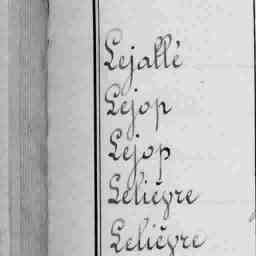 Lejallé
Lejop
Lejop
Lelièvre
Lelièvre